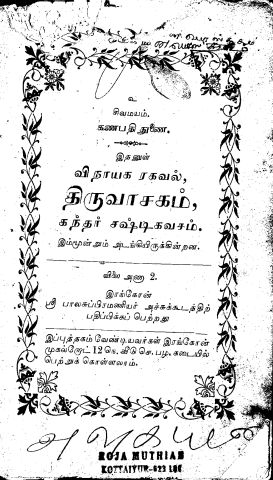 உ
சிவமயம்.
கணபதி துணை.
இதனுள்
விநாயக ரகவல்,
திருவாசகம்,
கந்தர் சஷ்டிகவசம்.
இம்மூன்றும் அடங்கியிருக்கின்றன.
விலை அணா 2.
இரங்கோன்
ஸ்ரீ பாலசுப்பிரமணியர் அச்சுக்கூடத்திற்
பதிப்பிக்கப் பெற்றது
இப்புத்தகம் வேண்டியவர்கள் இரங்கோன்
முகல்ரோட் 12 நெ. வீடு செ. பழ. கடையில்
பெற்றுக் கொள்ளலாம்.
ROJA MUTHIAH
KOTTAIYUR-623 106